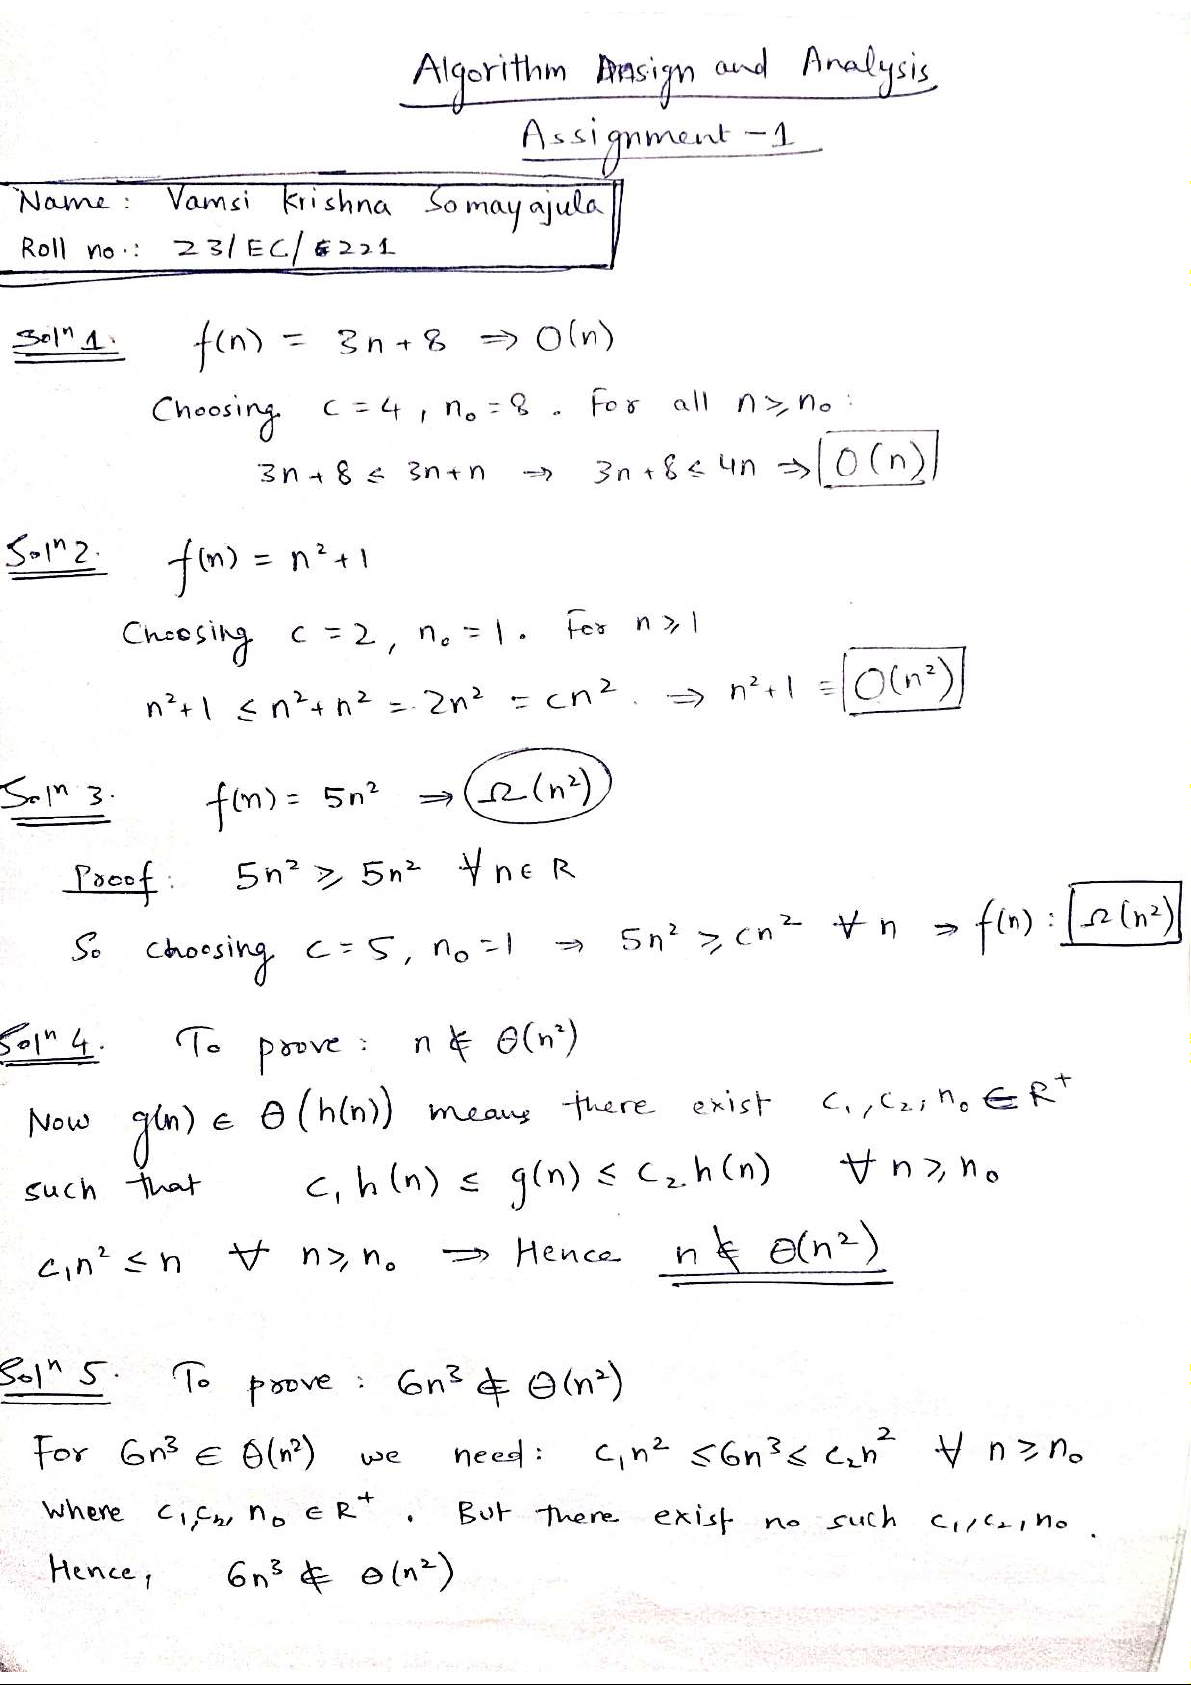 Algorithm Design and Analysis
Assignment - 1
Name : Vamsi Krishna Somayajula
Roll no.: 23/EC/221
Solⁿ 1. f(n) = 3n + 8 ⇒ O(n)
Choosing c = 4 , n₀ = 8 . For all n ≥ n₀ :
3n + 8 ≤ 3n + n ⇒ 3n + 8 ≤ 4n ⇒ O(n)
Solⁿ 2. f(n) = n² + 1
Choosing c = 2, n₀ = 1. For n ≥ 1
n² + 1 ≤ n² + n² = 2n² = cn². ⇒ n² + 1 = O(n²)
Solⁿ 3. f(n) = 5n² ⇒ Ω(n²)
Proof : 5n² ≥ 5n² ∀ n ∈ R
So choosing c = 5, n₀ = 1 ⇒ 5n² ≥ cn² ∀ n ⇒ f(n) : Ω(n²)
Solⁿ 4. To prove : n ∉ Θ(n²)
Now g(n) ∈ Θ(h(n)) means there exist c₁, c₂, n₀ ∈ R⁺
such that c₁h(n) ≤ g(n) ≤ c₂h(n) ∀ n ≥ n₀
c₁n² ≤ n ∀ n ≥ n₀ ⇒ Hence n ∉ Θ(n²)
Solⁿ 5. To prove : 6n³ ∉ Θ(n²)
For 6n³ ∈ Θ(n²) we need : c₁n² ≤ 6n³ ≤ c₂n² ∀ n ≥ n₀
where c₁, c₂, n₀ ∈ R⁺ . But there exist no such c₁, c₂, n₀ .
Hence, 6n³ ∉ Θ(n²)